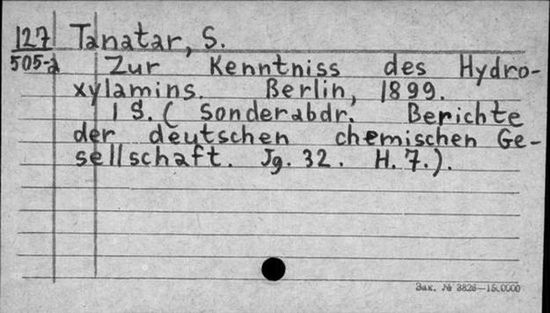 127 Tanatar, S.
505-2 Zur Kenntniss des Hydro-
xylamins. Berlin, 1899.
1 S. ( Sonderabdr. Berichte
der deutschen chemischen Ge-
sellschaft. Jg. 32. H. 7.).
Зак. № 3826—15.0000